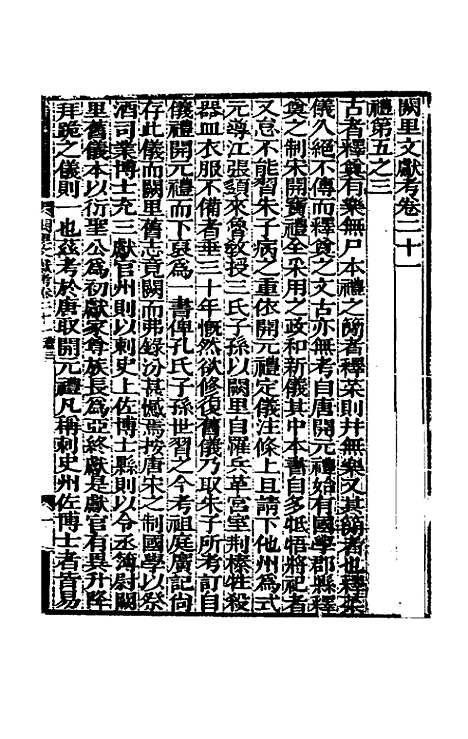 闕里文獻考卷二十一
禮第五之三
古者釋奠有樂無尸本禮之簡者釋菜則并無樂又其簡者也釋菜
儀久絕不傳而釋奠之文古亦無考自唐開元禮始有國學郡縣釋
奠之制宋開寶禮全采用之政和新儀其中本書自多牴牾將祀者
又怠不能習朱子病之重依開元禮定儀注條上且請下他州為式
元導江張𩔰來魯教授三氏子孫以闕里自罹兵革宮室荆榛牲殺
器皿衣服不備者垂三十年慨然欲修復舊儀乃取朱子所考訂自
儀禮開元禮而下裒為一書俾孔氏子孫世習之今考祖庭廣記尚
存此儀而闕里舊志竟闕而弗錄汾甚憾焉按唐宋之制國學以祭
酒司業博士充三獻官州則以刺史上佐博士縣則以令丞簿尉闕
里舊儀本以衍聖公為初獻家尊族長為亞終獻是獻官有異升降
拜跪之儀則一也茲考於唐取開元禮凡稱刺史州佐博士者皆易
闕里文獻考卷二十一